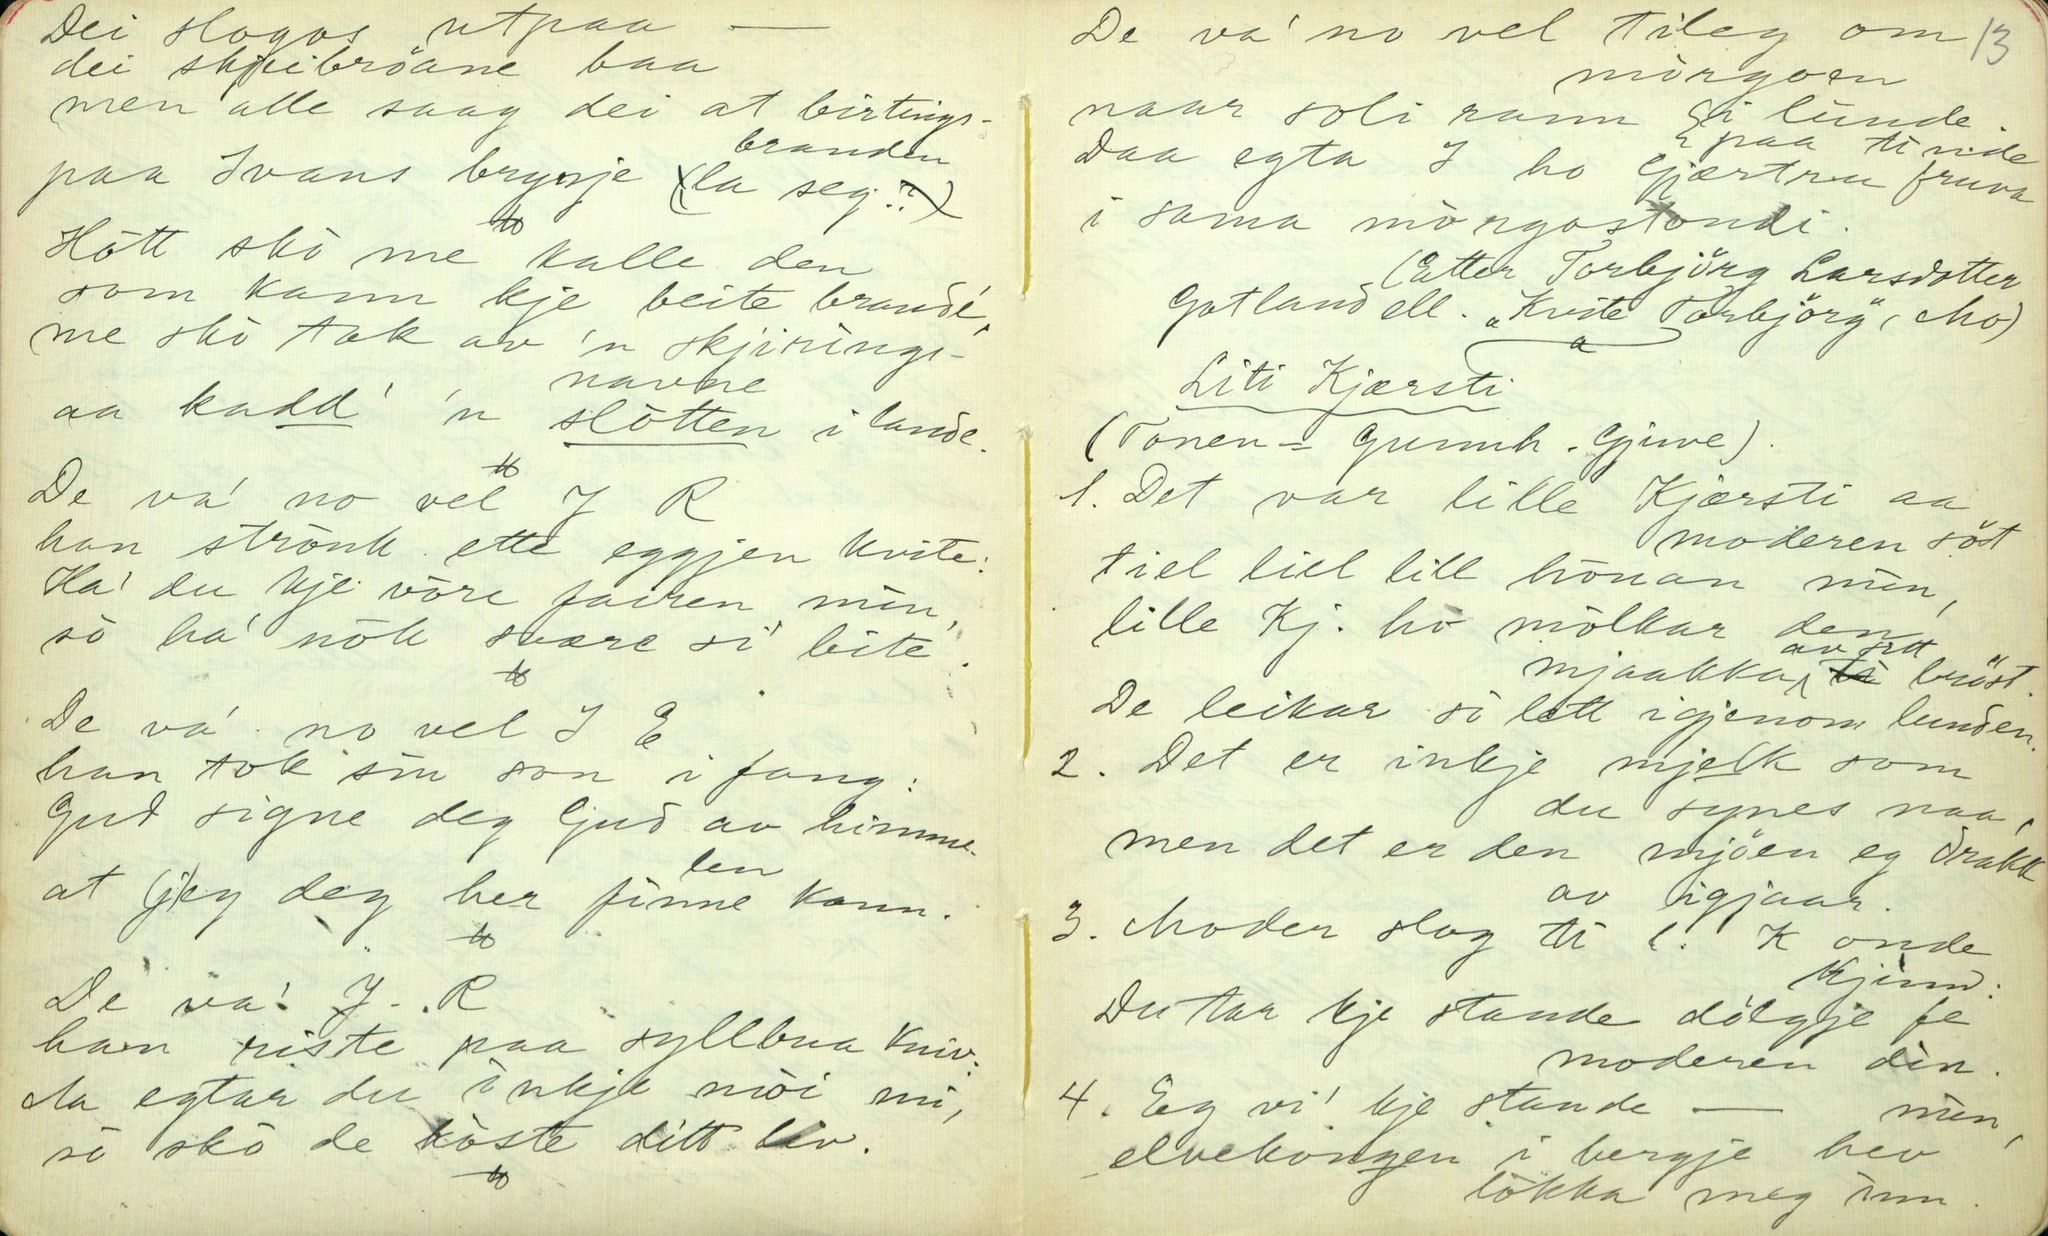 Dei slogos utpaa —
dei skjeibröane baa
men alle saag dei at birtings-
branden
paa Ivans brynje (la seg ?)
Hött skò me kalle den
som kann kje beite brandé,
me skò tak av 'n skjirings-
navne
aa kadd' 'n slòtten i lande.
De va' no vel J R
han strönk ette eggjen kvite:
Ha' du kje vöre fairen min,
sò ha' nòk svære si' bite.
De va' no vel I E
han tok sin son i fang:
Gud signe deg Gud av himme-
len
at (j)eg deg her finne kann.
De va' J. R
han riste paa syllbua kniv:
Aa egtar du inkje mòi mi,
sò skò de kòste ditt liv.
De va' no vel tileg om 13
mòrgoen
naar soli rann i lunde.
paa tinde
Daa egta I ho Gjærtru fruva
i sama mòrgostondi.
(Etter Torbjörg Larsdotter
Gotland ell. "Kvite Torbjörg", Mo)
Liti Kjærsti
(Tonen = Gunnh. Gjuve).
1. Det var lille Kjærsti aa
moderen söt
tiel liel lill hònan min,
lille Kj. hò mòlkar den
av sitt
mjaakka, ti bröst.
De leikar si lett igjenom lunden.
2. Det er inkje mjelk som
du synes naa,
men det er den mjöen eg drakk
av igjaar.
3. Moder slog ti l. K onde
kjinn:
Du tar kje stande dòlgje fe
moderen din.
4. Eg vi' kje stande — min,
elvekongen i bergje hev
lòkka meg inn.